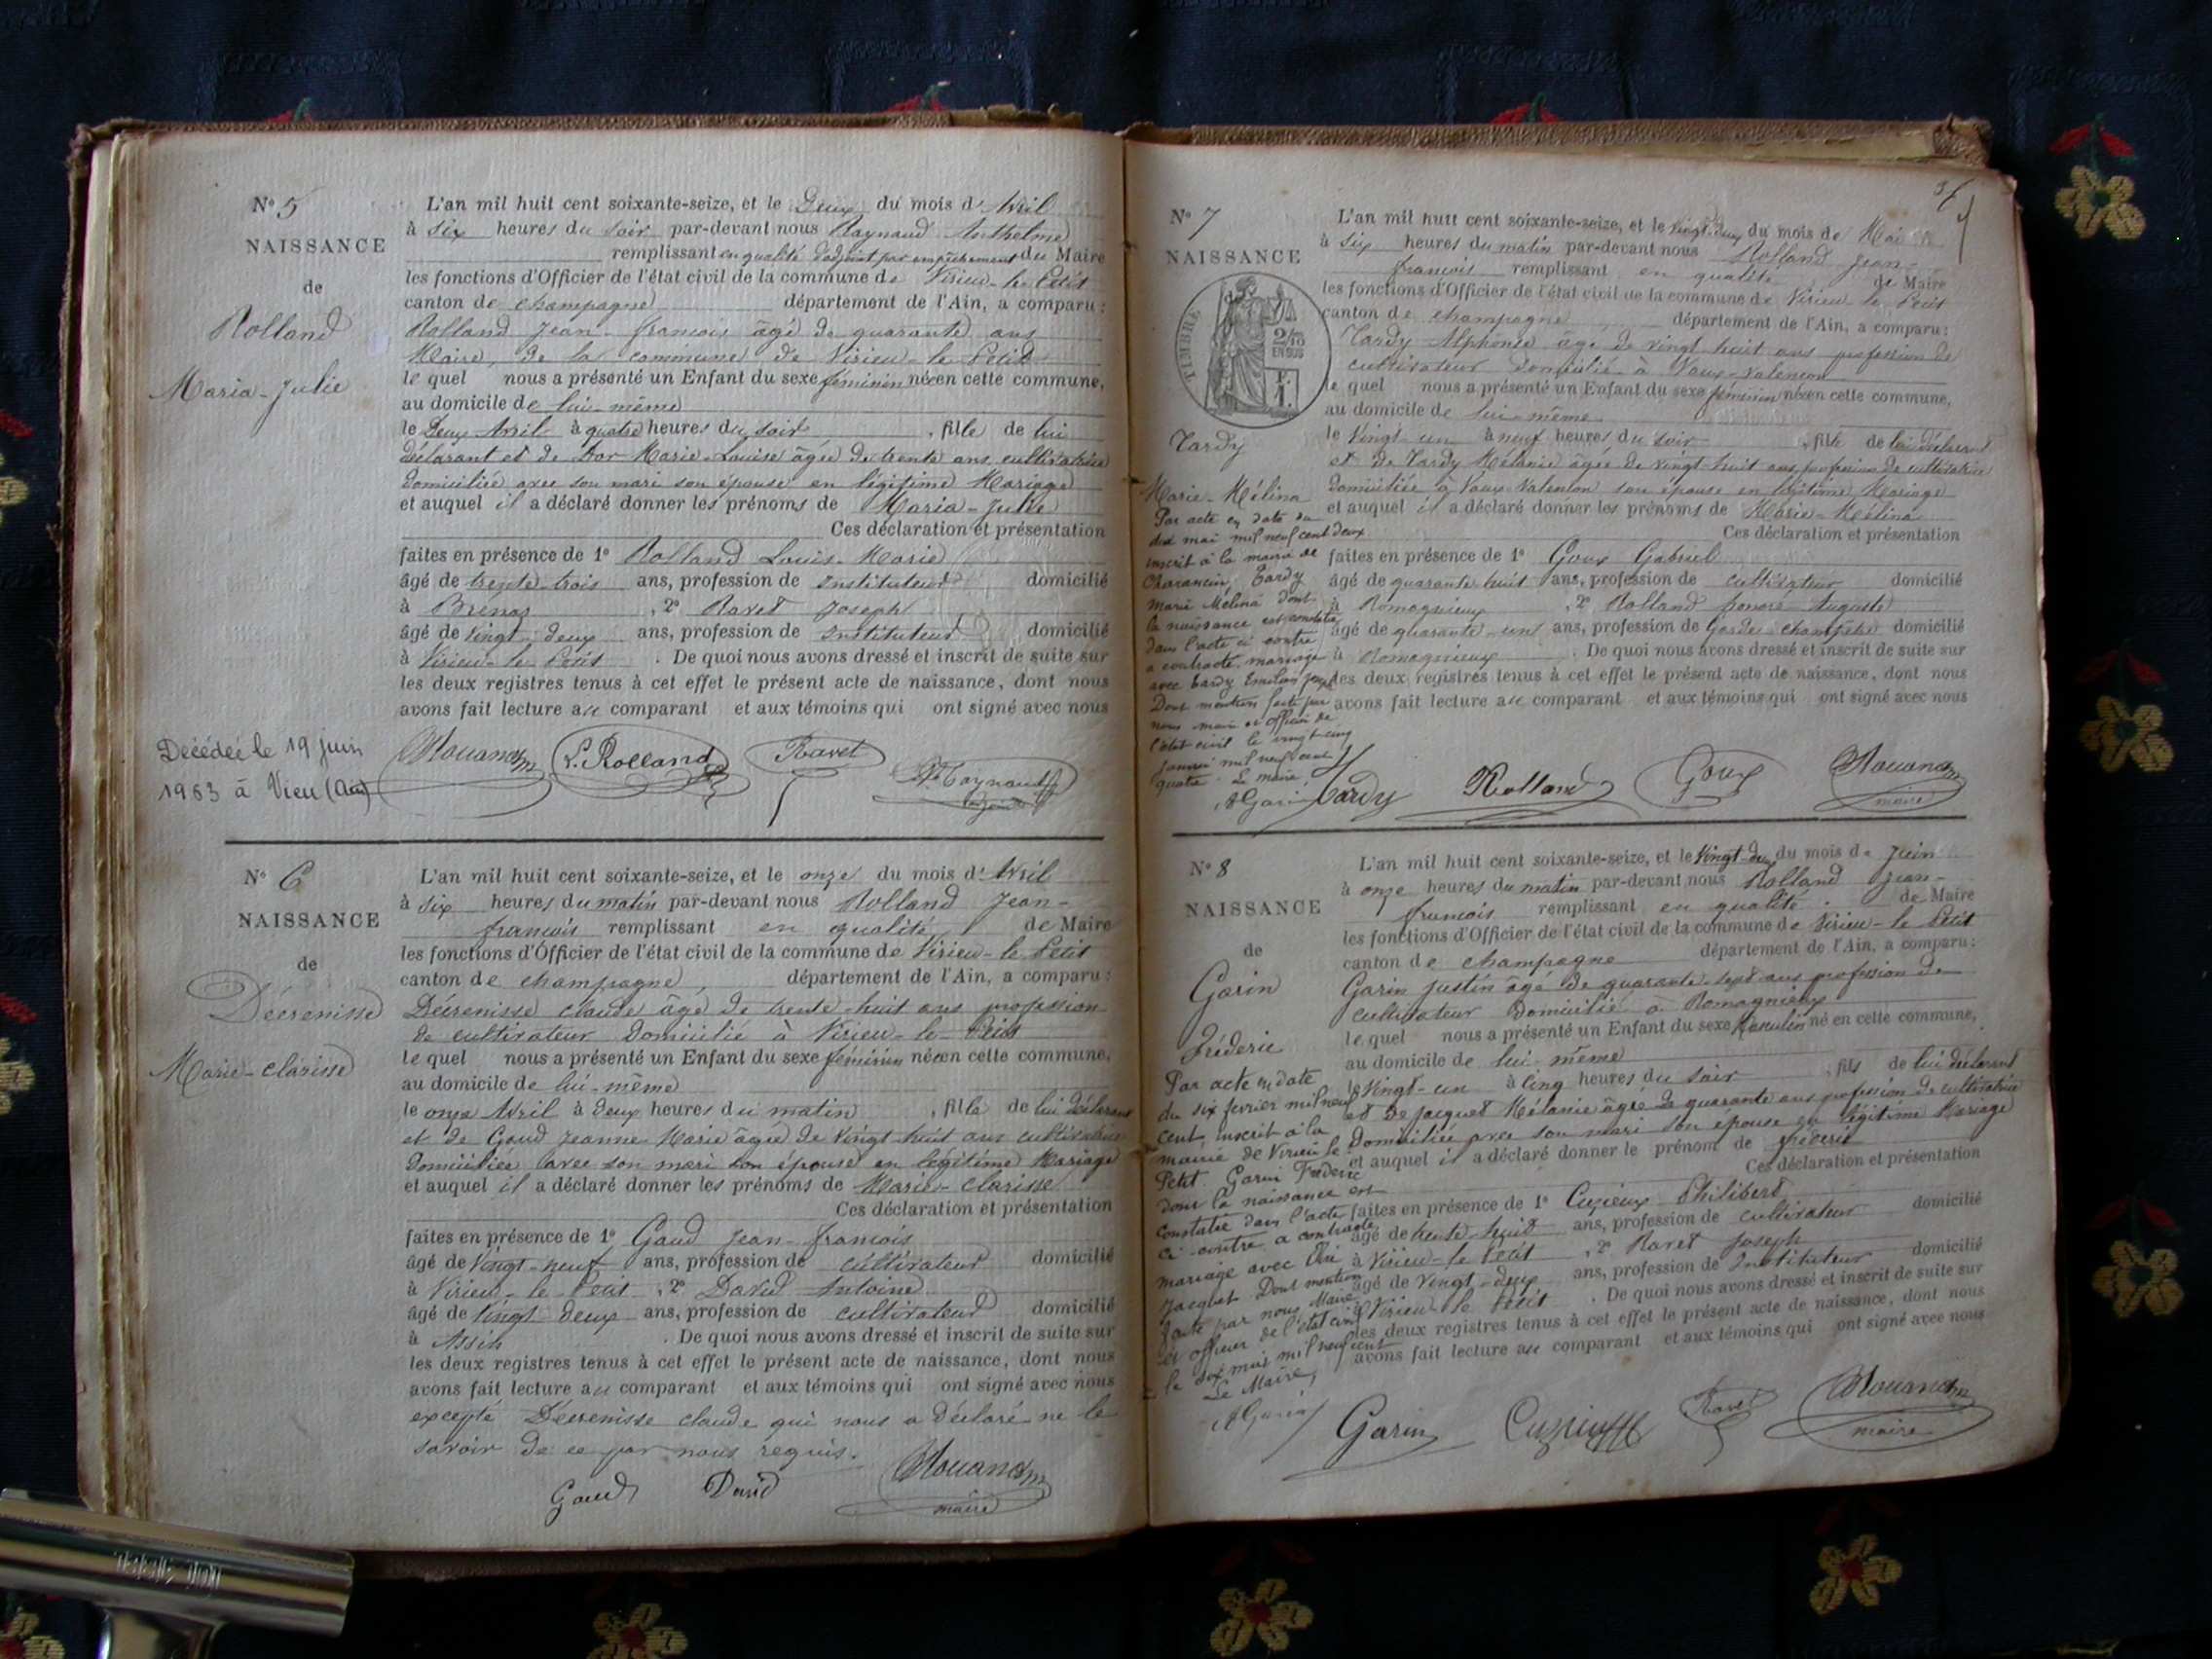 N° 5
NAISSANCE
de
Rolland
Maria-Julie
L'an mil huit cent soixante-seize, et le Deux du mois d'Avril
à six heures du soir par-devant nous Raynaud Anthelme
remplissant en qualité d'adjoint par empêchement du Maire
les fonctions d'Officier de l'état civil de la commune de Virieu-le-Petit
canton de champagne département de l'Ain, a comparu :
Rolland Jean-françois âgé de quarante ans
Maire, de la commune de Virieu-le-Petit
le quel nous a présenté un Enfant du sexe féminin née en cette commune,
au domicile de lui-même
le Deux Avril à quatre heures du soir , fille de lui
déclarant et de Dor Marie-Louise âgée de trente ans cultivatrice
domiciliée avec son mari son épouse en légitime Mariage
et auquel il a déclaré donner les prénoms de Maria-Julie
Ces déclaration et présentation
faites en présence de 1° Rolland Louis-Marie
âgé de trente-trois ans, profession de instituteur domicilié
à Brenaz , 2° Ravet Joseph
âgé de vingt-deux ans, profession de instituteur domicilié
à Virieu-le-Petit . De quoi nous avons dressé et inscrit de suite sur
les deux registres tenus à cet effet le présent acte de naissance, dont nous
avons fait lecture au comparant et aux témoins qui ont signé avec nous
Décédée le 19 juin
1963 à Vieu (Ain)
L. Rolland Ravet
N° 6
NAISSANCE
de
Décrenisse
Marie-clarisse
L'an mil huit cent soixante-seize, et le onze du mois d'Avril
à six heures du matin par-devant nous Rolland Jean-
françois remplissant en qualité de Maire
les fonctions d'Officier de l'état civil de la commune de Virieu-le-Petit
canton de champagne, département de l'Ain, a comparu :
Décrenisse claude âgé de trente-huit ans profession
de cultivateur domicilié à Virieu-le-Petit
le quel nous a présenté un Enfant du sexe féminin née en cette commune,
au domicile de lui-même
le onze Avril à deux heures du matin , fille de lui déclarant
et de Gaud Jeanne-Marie âgée de vingt-huit ans cultivatrice
domiciliée avec son mari son épouse en légitime Mariage
et auquel il a déclaré donner les prénoms de Marie-clarisse
Ces déclaration et présentation
faites en présence de 1° Gaud Jean-françois
âgé de vingt-neuf ans, profession de cultivateur domicilié
à Virieu-le-Petit , 2° David Antoine
âgé de vingt-deux ans, profession de cultivateur domicilié
à Assin . De quoi nous avons dressé et inscrit de suite sur
les deux registres tenus à cet effet le présent acte de naissance, dont nous
avons fait lecture au comparant et aux témoins qui ont signé avec nous
excepté Décrenisse claude qui nous a déclaré ne le
savoir de ce par nous requis.
Gaud David
maire
N° 7
NAISSANCE
TIMBRE
2/10
EN SUS
Tardy
Marie-Mélina
L'an mil huit cent soixante-seize, et le vingt-deux du mois de Mai
à six heures du matin par-devant nous Rolland Jean-
françois remplissant en qualité de Maire
les fonctions d'Officier de l'état civil de la commune de Virieu-le-Petit
canton de champagne département de l'Ain, a comparu :
Tardy Alphonse âgé de vingt huit ans profession de
cultivateur domicilié à Vaux-Valenson
le quel nous a présenté un Enfant du sexe féminin née en cette commune,
au domicile de lui-même
le vingt-un à neuf heures du soir , fille de lui déclarant
et de Tardy Mélanie âgée de vingt-huit ans profession de cultivatrice
domiciliée à Vaux-Valenson son épouse en légitime Mariage
et auquel il a déclaré donner les prénoms de Marie-Mélina
Ces déclaration et présentation
faites en présence de 1° Goux Gabriel
âgé de quarante-huit ans, profession de cultivateur domicilié
à Romagnieux , 2° Rolland honoré Auguste
âgé de quarante-un ans, profession de Garde-champêtre domicilié
à Romagnieux . De quoi nous avons dressé et inscrit de suite sur
les deux registres tenus à cet effet le présent acte de naissance, dont nous
avons fait lecture au comparant et aux témoins qui ont signé avec nous
Par acte en date du
dix mai mil neuf cent deux
inscrit à la mairie de
Charancin, Tardy
Marie Mélina dont
la naissance est constatée
dans l'acte ci contre
a contracté mariage
avec Tardy
Dont mention faite par
nous maire et officier de
l'état civil le vingt-cinq
janvier mil neuf cent
quatre. Le maire,
Tardy Rolland Goux
maire
N° 8
NAISSANCE
de
Garin
fréderic
L'an mil huit cent soixante-seize, et le vingt-deux du mois de Juin
à onze heures du matin par-devant nous Rolland Jean-
françois remplissant en qualité de Maire
les fonctions d'Officier de l'état civil de la commune de Virieu-le-Petit
canton de champagne département de l'Ain, a comparu :
Garin justin âgé de quarante-sept ans profession de
cultivateur domicilié à Romagnieux
le quel nous a présenté un Enfant du sexe Masculin né en cette commune,
au domicile de lui-même
le vingt-un à cinq heures du soir , fils de lui déclarant
et de jacquet Mélanie âgée de quarante ans profession de cultivatrice
domiciliée avec son mari son épouse en légitime Mariage
et auquel il a déclaré donner le prénom de fréderic
Ces déclaration et présentation
faites en présence de 1° Cuzieux Philibert
âgé de trente-huit ans, profession de cultivateur domicilié
à Virieu-le-Petit , 2° Ravet Joseph
âgé de vingt-deux ans, profession de Instituteur domicilié
à Virieu-le-Petit . De quoi nous avons dressé et inscrit de suite sur
les deux registres tenus à cet effet le présent acte de naissance, dont nous
avons fait lecture au comparant et aux témoins qui ont signé avec nous
Par acte en date
du six février mil neuf
cent, inscrit à la
mairie de Virieu le
Petit. Garin Frédéric
dont la naissance est
constatée dans l'acte
ci-contre a contracté
mariage avec
Jacquet Dont mention
faite par nous Maire
et officier de l'état civil
le dix mars mil neuf cent
Le Maire,
Garin Ravet
maire